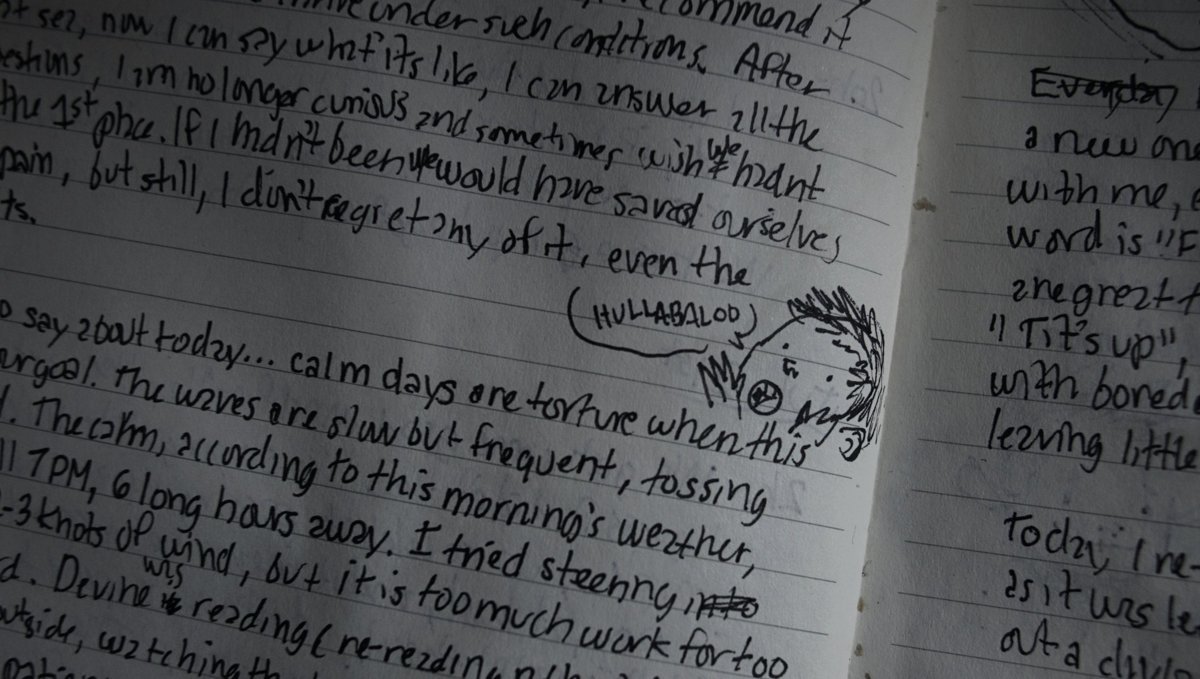 under such conditions. After
set, now I can say what it's like, I can answer all the
I am no longer curious and sometimes wish we hadnt
the 1st place. If I hadn't been we would have saved ourselves
pain, but still, I don't regret any of it, even the
ts.
HULLABALOO
say about today... calm days are torture when this
goal. The waves are slow but frequent, tossing
The calm, according to this morning's weather,
7PM, 6 long hours away. I tried steering into
-3 knots of wind, but it is too much work for too
d. Devine was reading (re-reading
outside, watching
Everyday
a new one
with me,
word is "F
are great
"Tit's up",
with bored
leaving little
today, I re-
as it was le
out a